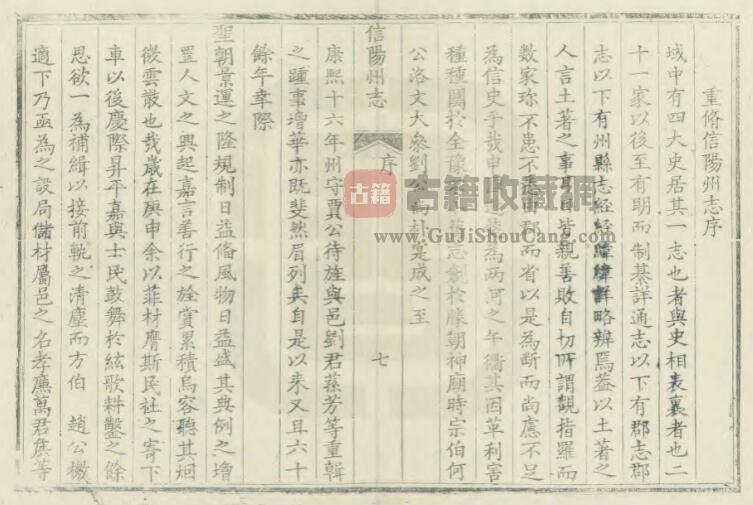 重脩信陽州志序
域中有四大史居其一志也者與史相表裏者也二
十一家以後至有明而制綦詳通志以下有郡志郡
志以下有州縣志經經緯緯詳略辨焉蓋以土著之
人言土著之事耳目皆親善敗自切所謂觀指羅而
数家珎不患不郡而省以是為断而尚慮不足
為信史乎哉申為两河之午衝其因革利害
種種關於全豫志創於勝朝神廟時宗伯何
公洛文大叅劉公是成之至
信陽州志
序
七
康熈十六年州守賈公待旌與邑劉君蓀芳等重輯
之踵事增華亦既斐然眉列矣自是以来又且六十
餘年幸際
聖朝景運之隆規制日益脩風物日益盛其典例之增
置人文之興起嘉言善行之旌賞累積烏容聴其烟
微雲散也哉歲在庚申余以菲材膺斯民社之寄下
車以後慶際昇平嘉與士民鼓舞於絃歌耕鑿之餘
思欲一為補緝以接前軌之清塵而方伯 趙公檄
適下乃亟為之設局儲材屬邑之名孝廉萬君等
古籍
古籍收藏网
www.GuJiShouCang.com